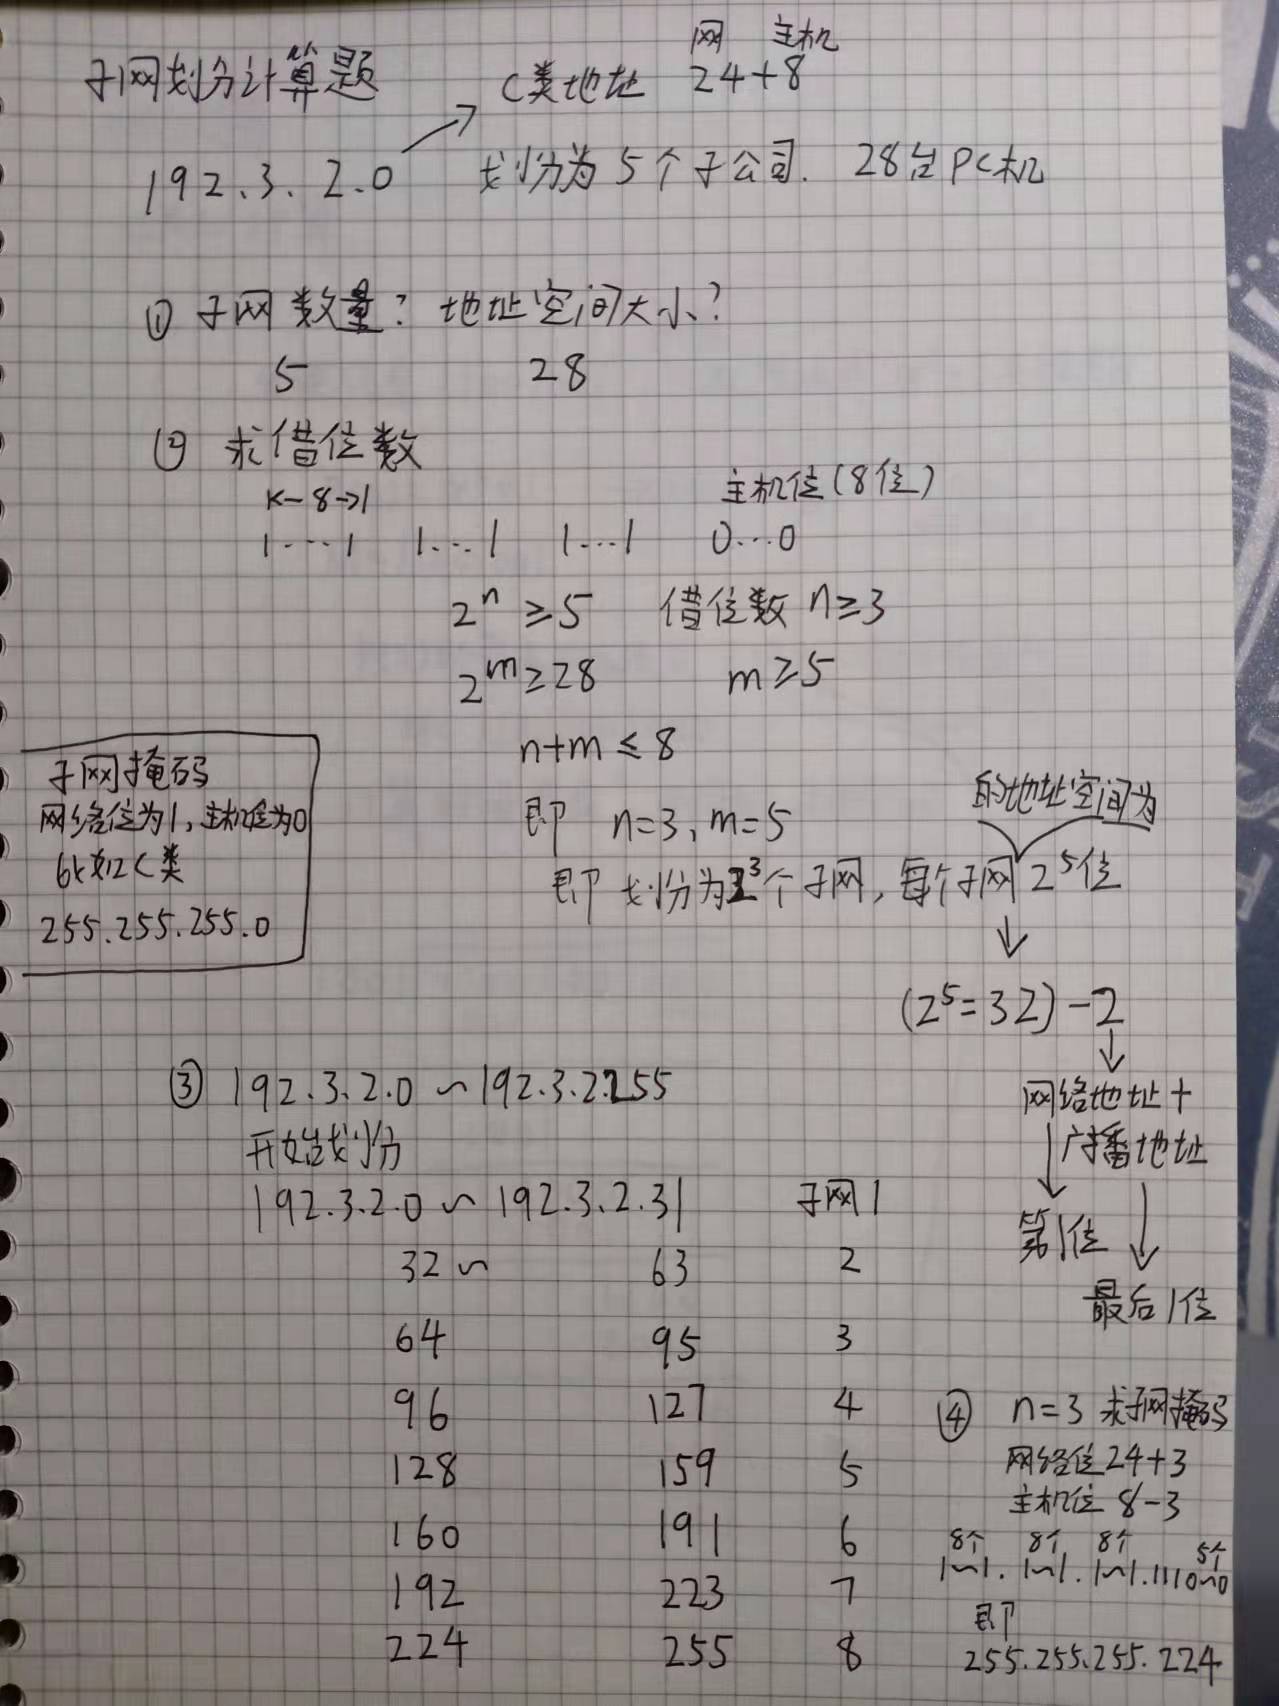 子网划分计算题
网 主机
C类地址 24+8
192.3.2.0 划分为5个子公司. 28台PC机
① 子网数量? 地址空间大小?
5 28
② 求借位数
K-8->1
主机位(8位)
1....1 1...1 1...1 0...0
2ⁿ ≥5 借位数 n≥3
2ᵐ≥28 m≥5
n+m ≤ 8
即 n=3, m=5
的地址空间为
即 划分为2³个子网, 每个子网2⁵位
(2⁵=32)-2
网络地址+
广播地址
第1位
最后1位
子网掩码
网络位为1,主机位为0
比如C类
255.255.255.0
③ 192.3.2.0 ~ 192.3.2.255
开始划分
192.3.2.0 ~ 192.3.2.31 子网1
32 ~ 63 2
64 95 3
96 127 4
128 159 5
160 191 6
192 223 7
224 255 8
④ n=3 求子网掩码
网络位24+3
主机位 8-3
8个 8个 8个 5个
1~1. 1~1. 1~1.1110~0
即
255.255.255.224